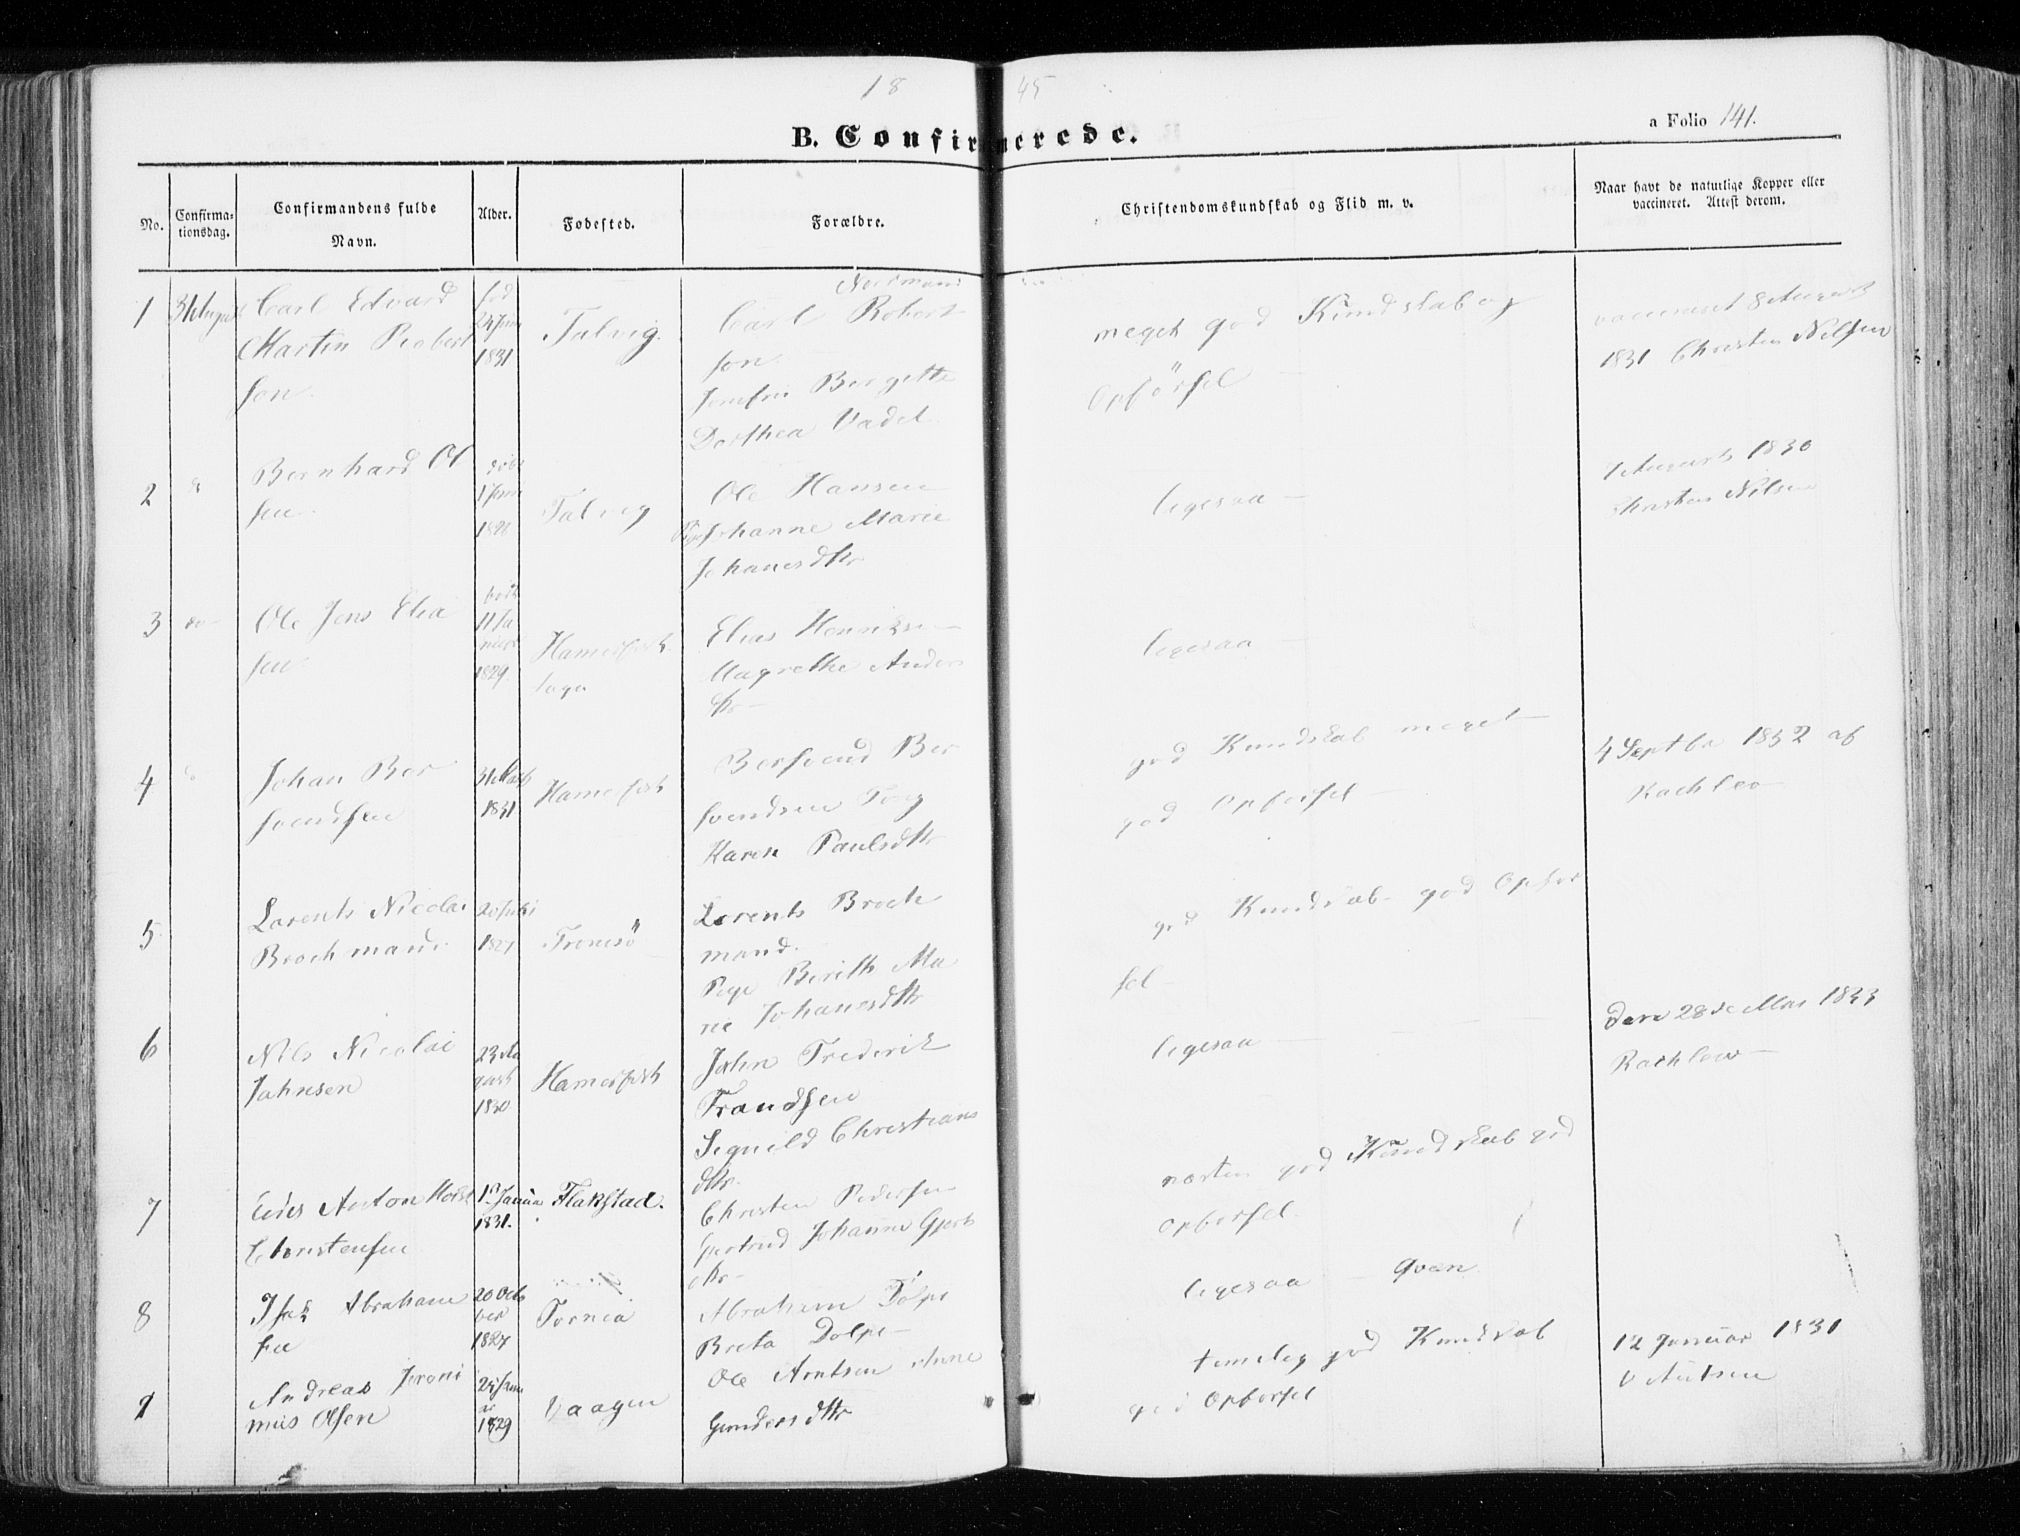 18 45
B. Confirmerede.
a Folio 141.
No.
Confirma-
tionsdag.
Confirmandens fulde
Navn.
Alder.
Fødested.
Forældre.
Christendomskundskab og Flid m. v.
Naar havt de naturlige Kopper eller
vaccineret. Attest derom.
1 31 August Carl Edvard
Martin Robert
son.
fød
24 Juni
1831
Talvig.
Nordmand
Carl Robert
son.
Bergitte
Dorthea Vadel.
meget god Kundskab og
Opførsel —
vaccineret 8 August
1831 Christen Nilsen
2 Bernhard Ol
sen.
Talvig
Ole Hansen
Pige Johanne Marie
Johanesdttr
ligesaa —
August 1830
Christen Nilsen
3 do Ole Jens Elia
sen
født
11 Ja
nuar
1829.
Hamerfest
Elias Henriksen
Magrethe Anders
dtr —
ligesaa —
4 Johan Ber
svendsen
31 Marts
1831
Hamerfest
Bersvend Ber
svendsen
Karen Paulsdttr
god Kundskab meget
god Opførsel —
4 Septbr 1832 af
Rachlew
5 Lorents Nicolai
Brochmand
20 Juli
1827
Tromsö
Lorents Broch
mand.
Pige Berith Ma
rie Johanesdttr
god Kundskab god Opfør
sel —
6 Nils Nicolai
Jahnsen
23 Au
gust
1830
Hamerfest
Jahn Frederik
Frandsen
Signild Christians
dttr.
ligesaa —
den 28de Mai 1833
Rachlew —
7 Anton
Christensen
1st Janua
1831.
Flakstad.
Christen Pedersen
Gjertrud Johanna Gjerts
dtr —
næsten god Kundskab god
Opførsel.
8 Isak Abraham
sen
20 Octo
ber
1827
Tornia
Abraham Tolpe
Breta Dolpe —
ligesaa — Qvæn
9 Andreas Jeroni
mus Olsen
24 Janu
ar
1829
Vaagen
Ole Arntsen Anne
Gundersdttr
temelig god Kundskab
god Opførsel
12 Januar 1831